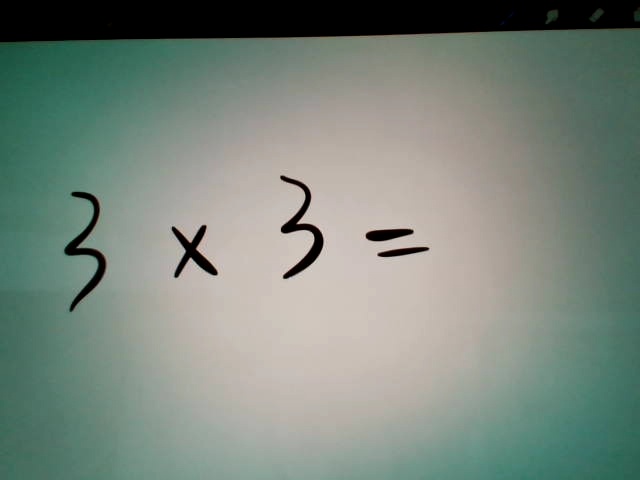 3 × 3 =